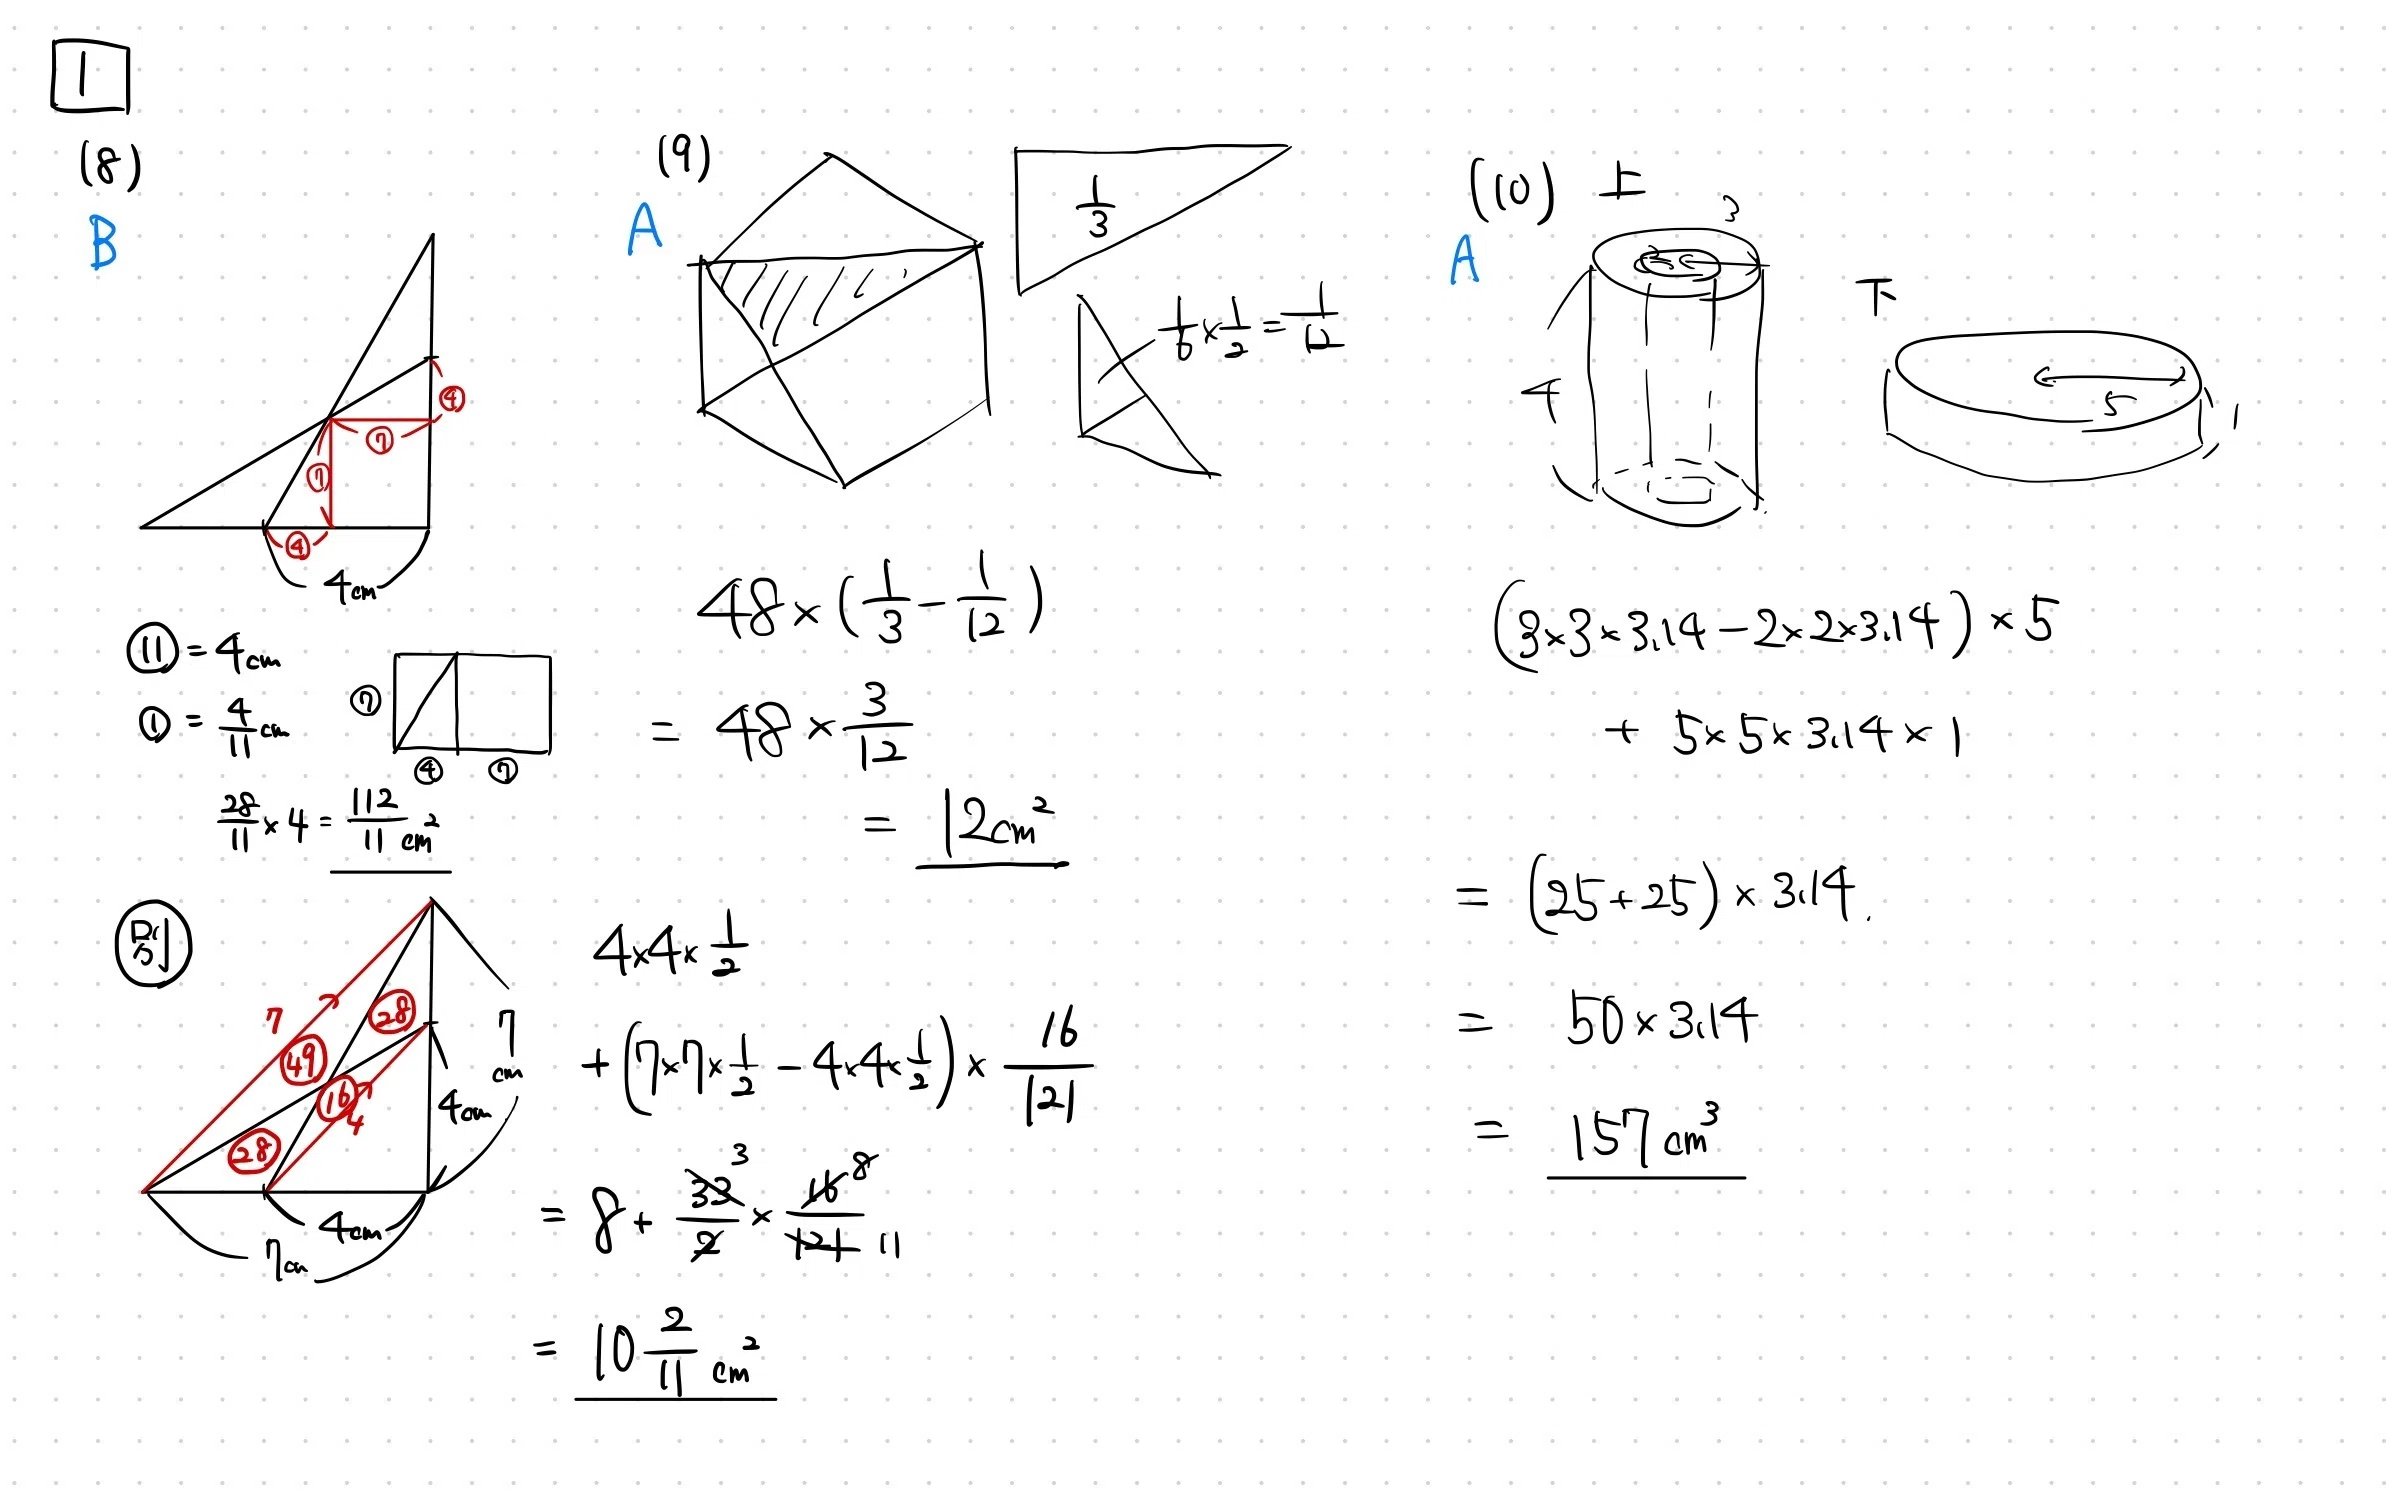 1
(8)
B
④
⑦
⑦
④
4cm
⑪ = 4cm
① = 4/11 cm
⑦
④ ⑦
28/11 × 4 = 112/11 cm²
別
7
㊾
㉘
⑯
4
㉘
7cm
4cm
4cm
7cm
4×4×1/2
+ (7×7×1/2 - 4×4×1/2) × 16/121
= 8 + 33/2 × 16/121
3 8 11
= 10 2/11 cm²
(9)
A
1/3
1/6 × 1/2 = 1/12
48 × (1/3 - 1/12)
= 48 × 3/12
= 12cm²
(10) 上
A
3
4
下
5
1
(3×3×3.14 - 2×2×3.14) × 5
+ 5×5×3.14×1
= (25+25) × 3.14.
= 50×3.14
= 157 cm³